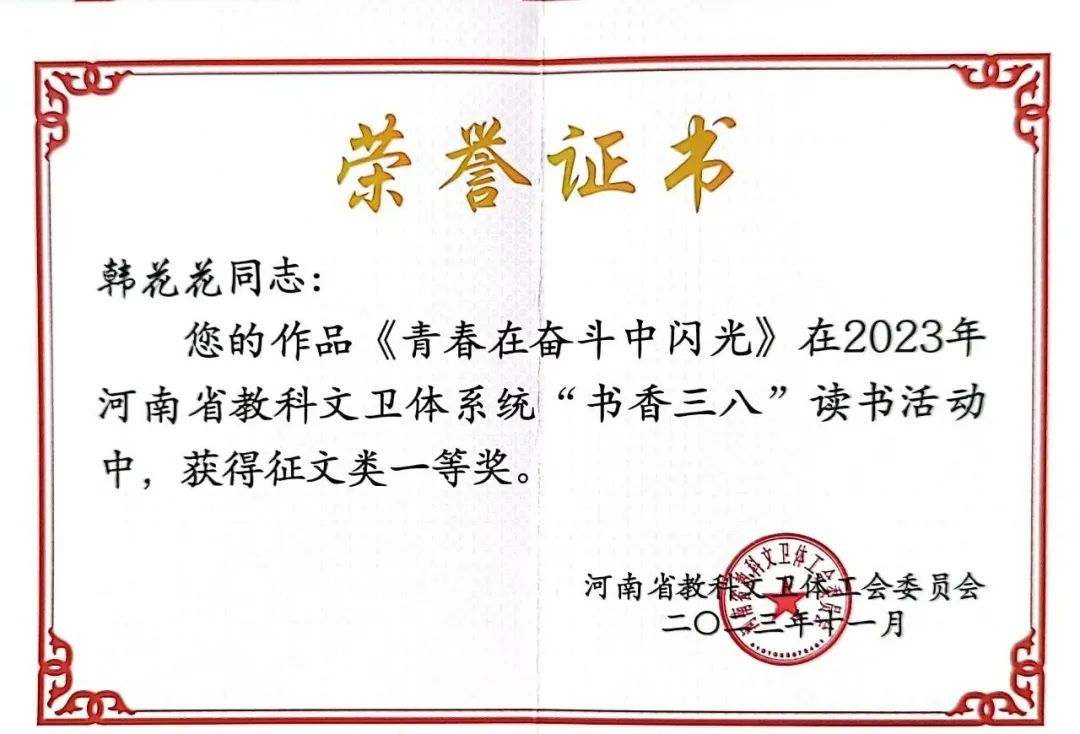 荣誉证书
韩花花同志：
您的作品《青春在奋斗中闪光》在2023年
河南省教科文卫体系统“书香三八”读书活动
中，获得征文类一等奖。
河南省教科文卫体工会委员会
二〇二三年十一月
河南省教科文卫体工会委员会